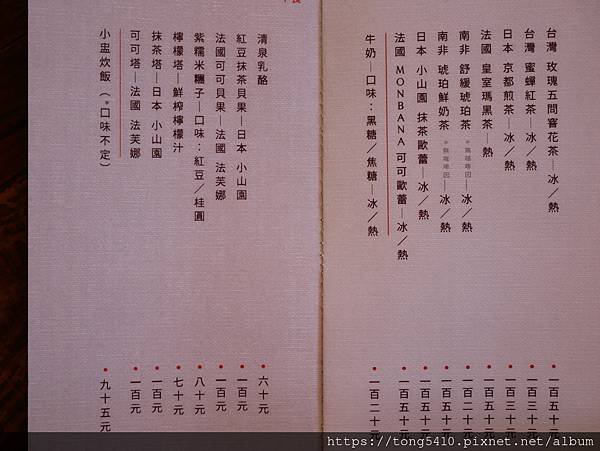 台灣 玫瑰五問窨花茶—冰／熱 • 一百五十元
台灣 蜜蟬紅茶—冰／熱 • 一百三十元
日本 京都煎茶—冰／熱 • 一百三十元
法國 皇室瑪黑茶—熱 • 一百五十元
南非 舒緩琥珀茶 *無咖啡因—冰／熱 • 一百二十元
南非 琥珀鮮奶茶 *無咖啡因—冰／熱 • 一百五十元
日本 小山園 抹茶歐蕾—冰／熱 • 一百五十元
法國 MONBANA 可可歐蕾—冰／熱 • 一百五十元
牛奶—口味：黑糖／焦糖—冰／熱 • 一百二十元
清泉乳酪 • 六十元
紅豆抹茶貝果—日本 小山園 • 一百元
法國可可貝果—法國 法芙娜 • 一百元
紫糯米糰子—口味：紅豆／桂圓 • 八十元
檸檬塔—鮮榨檸檬汁 • 七十元
抹茶塔—日本 小山園 • 一百元
可可塔—法國 法芙娜 • 一百元
小盅炊飯（*口味不定） • 九十五元
https://tong5410.pixnet.net/album